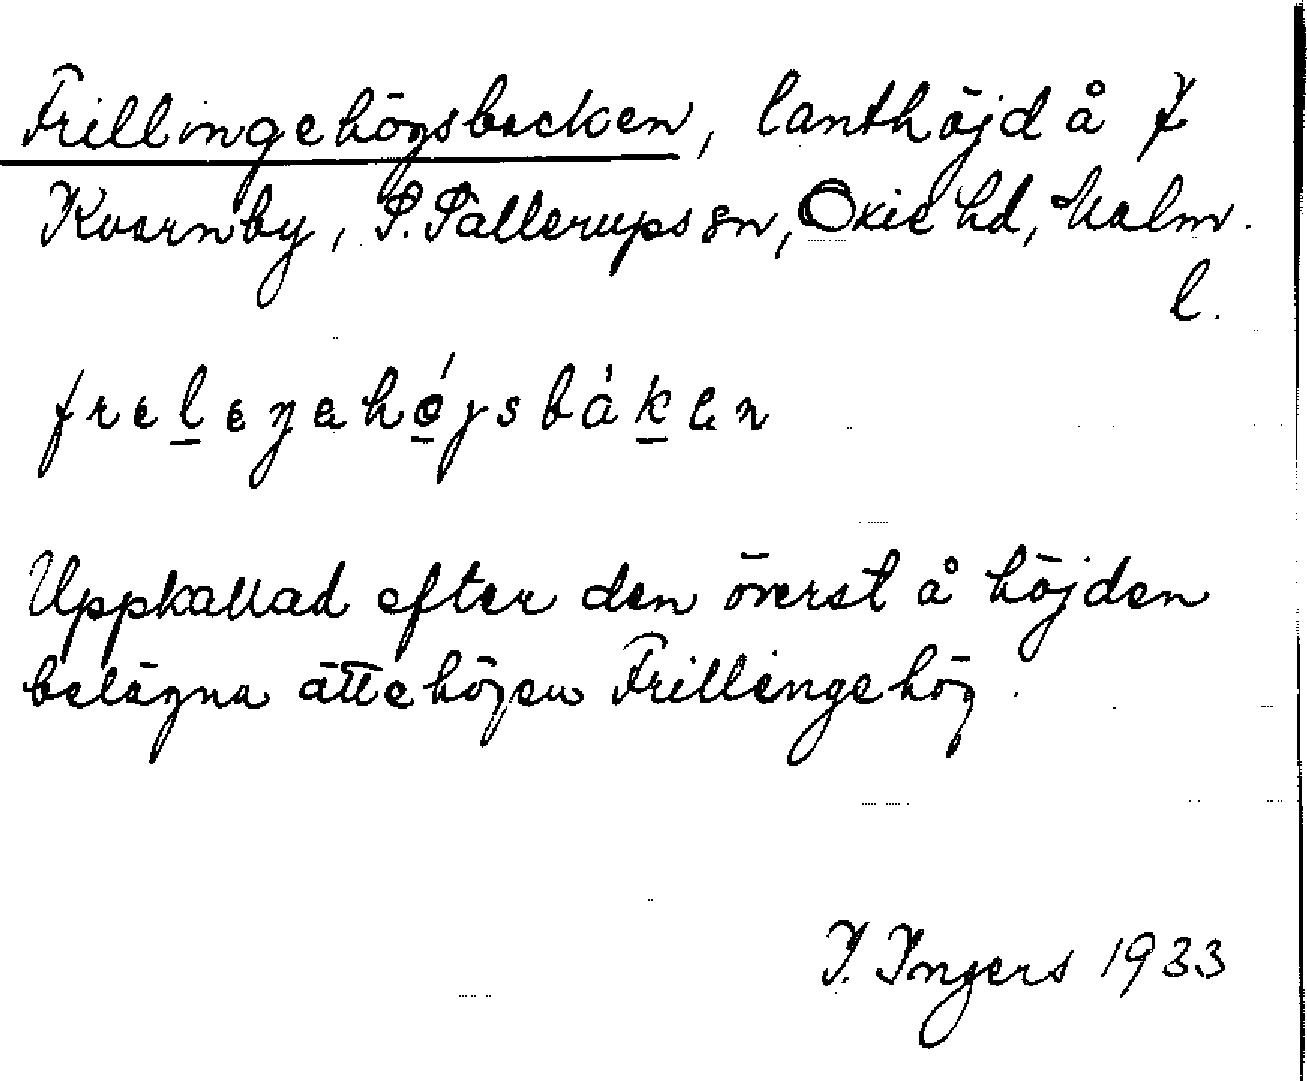 Frillingehögsbacken, lanthöjd å 7
Kvarnby, S. Sallerups sn, Oxie hd, Malm.
l.
freleŋahǿgsbàken
Uppkallad efter den överst å höjden
belägna ättehögen Frillingehög.
I. Ingers 1933